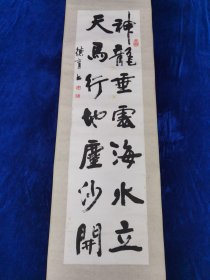 神龍垂雲海水立
天馬行地塵沙開